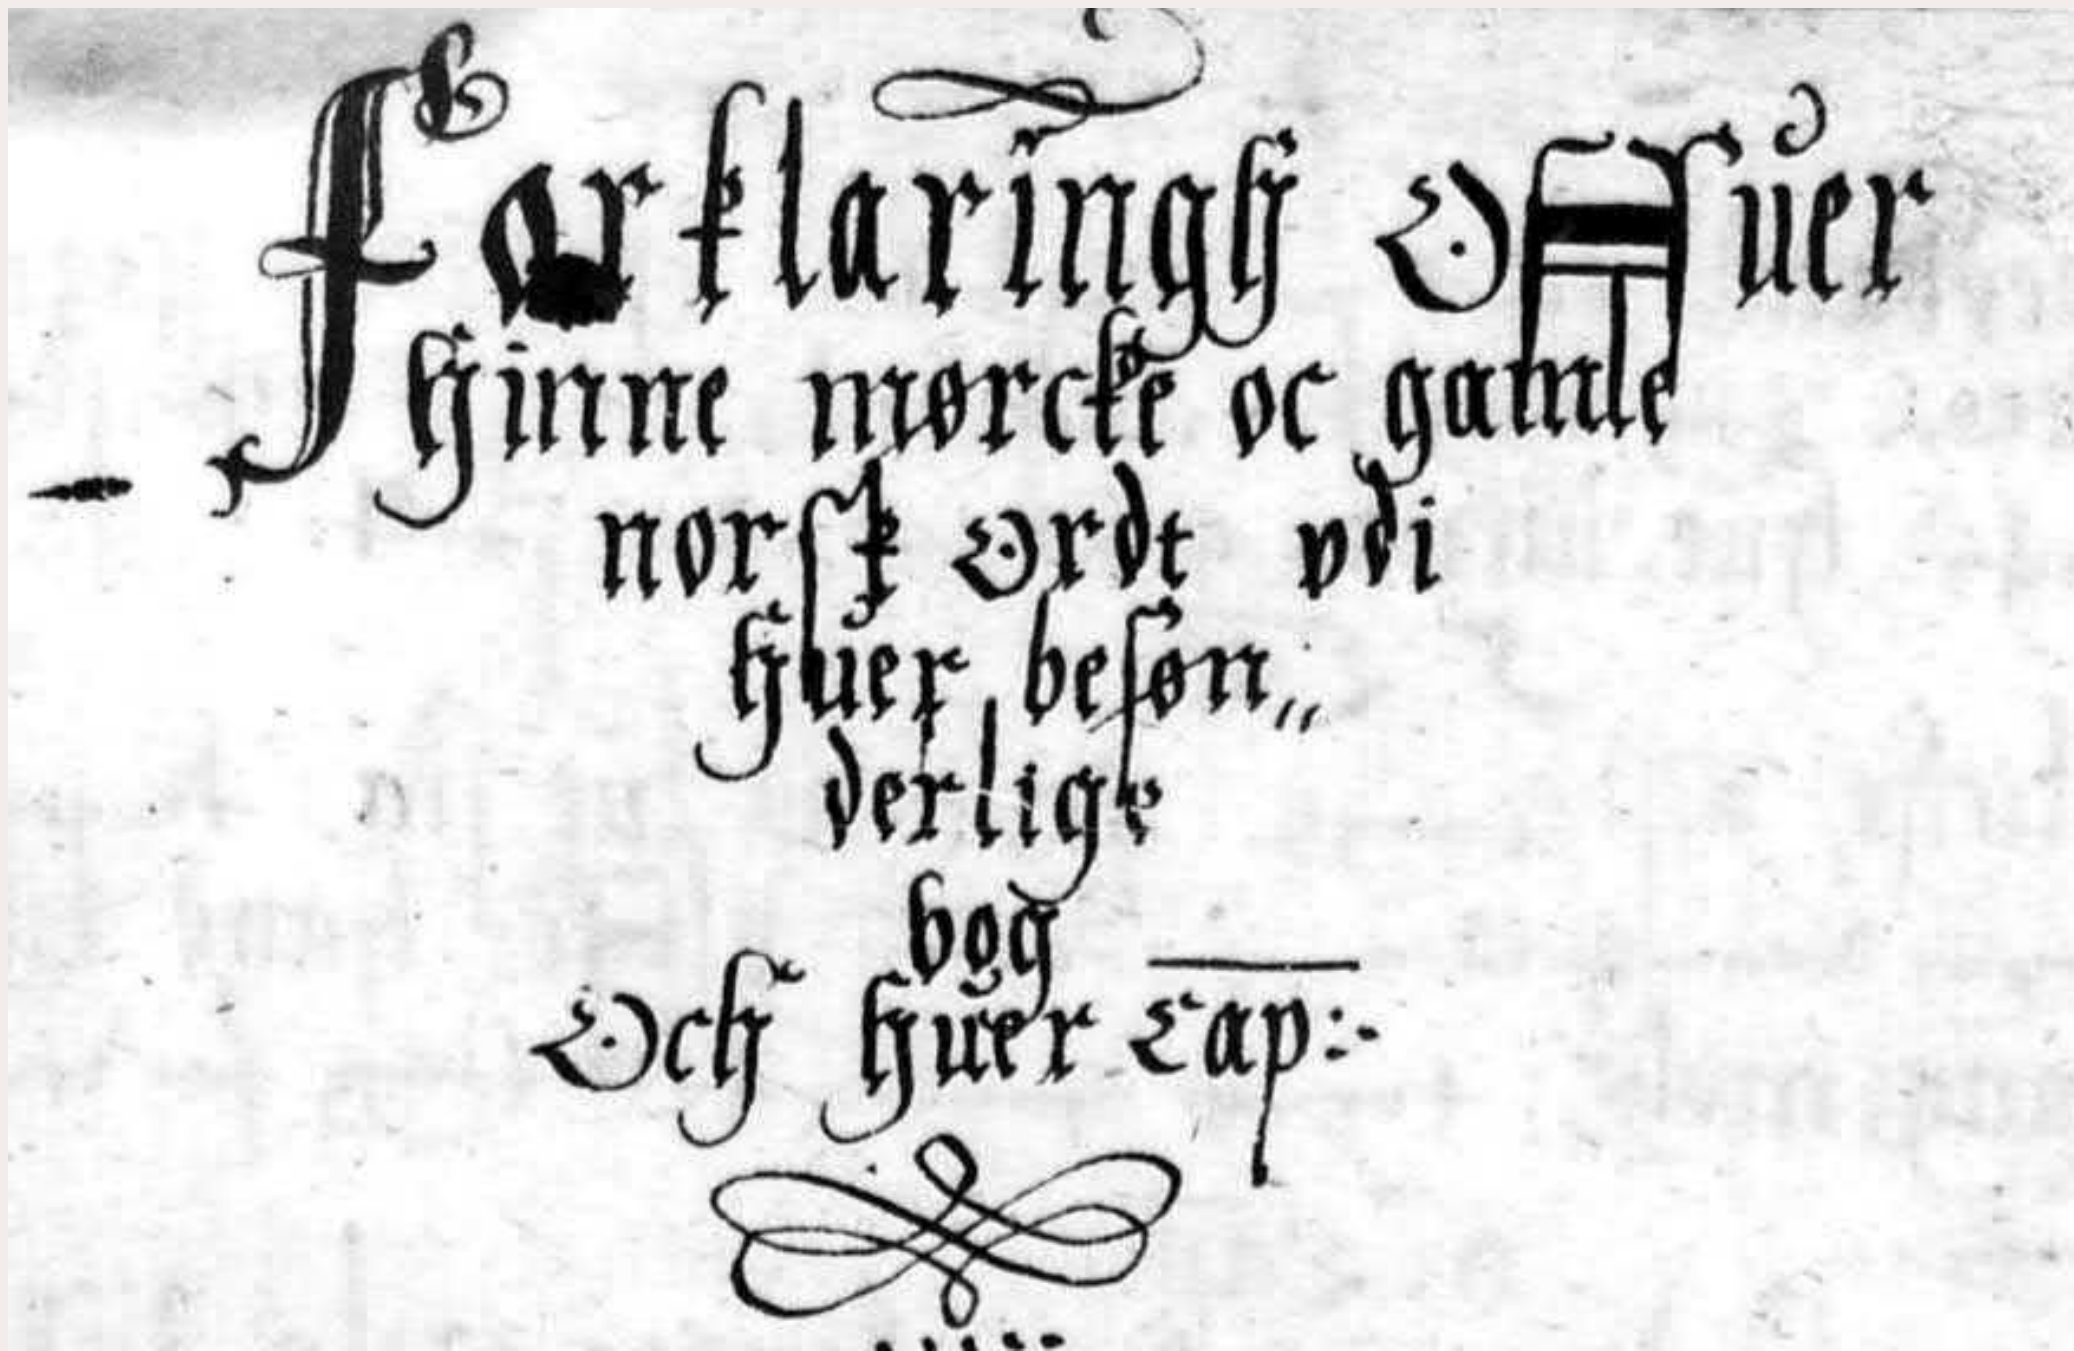 Forklaringh Offuer
hinne mørcke oc gamle
norsk Ordt vdi
huer beszøn„
derlige
bog
Och huer Cap:-